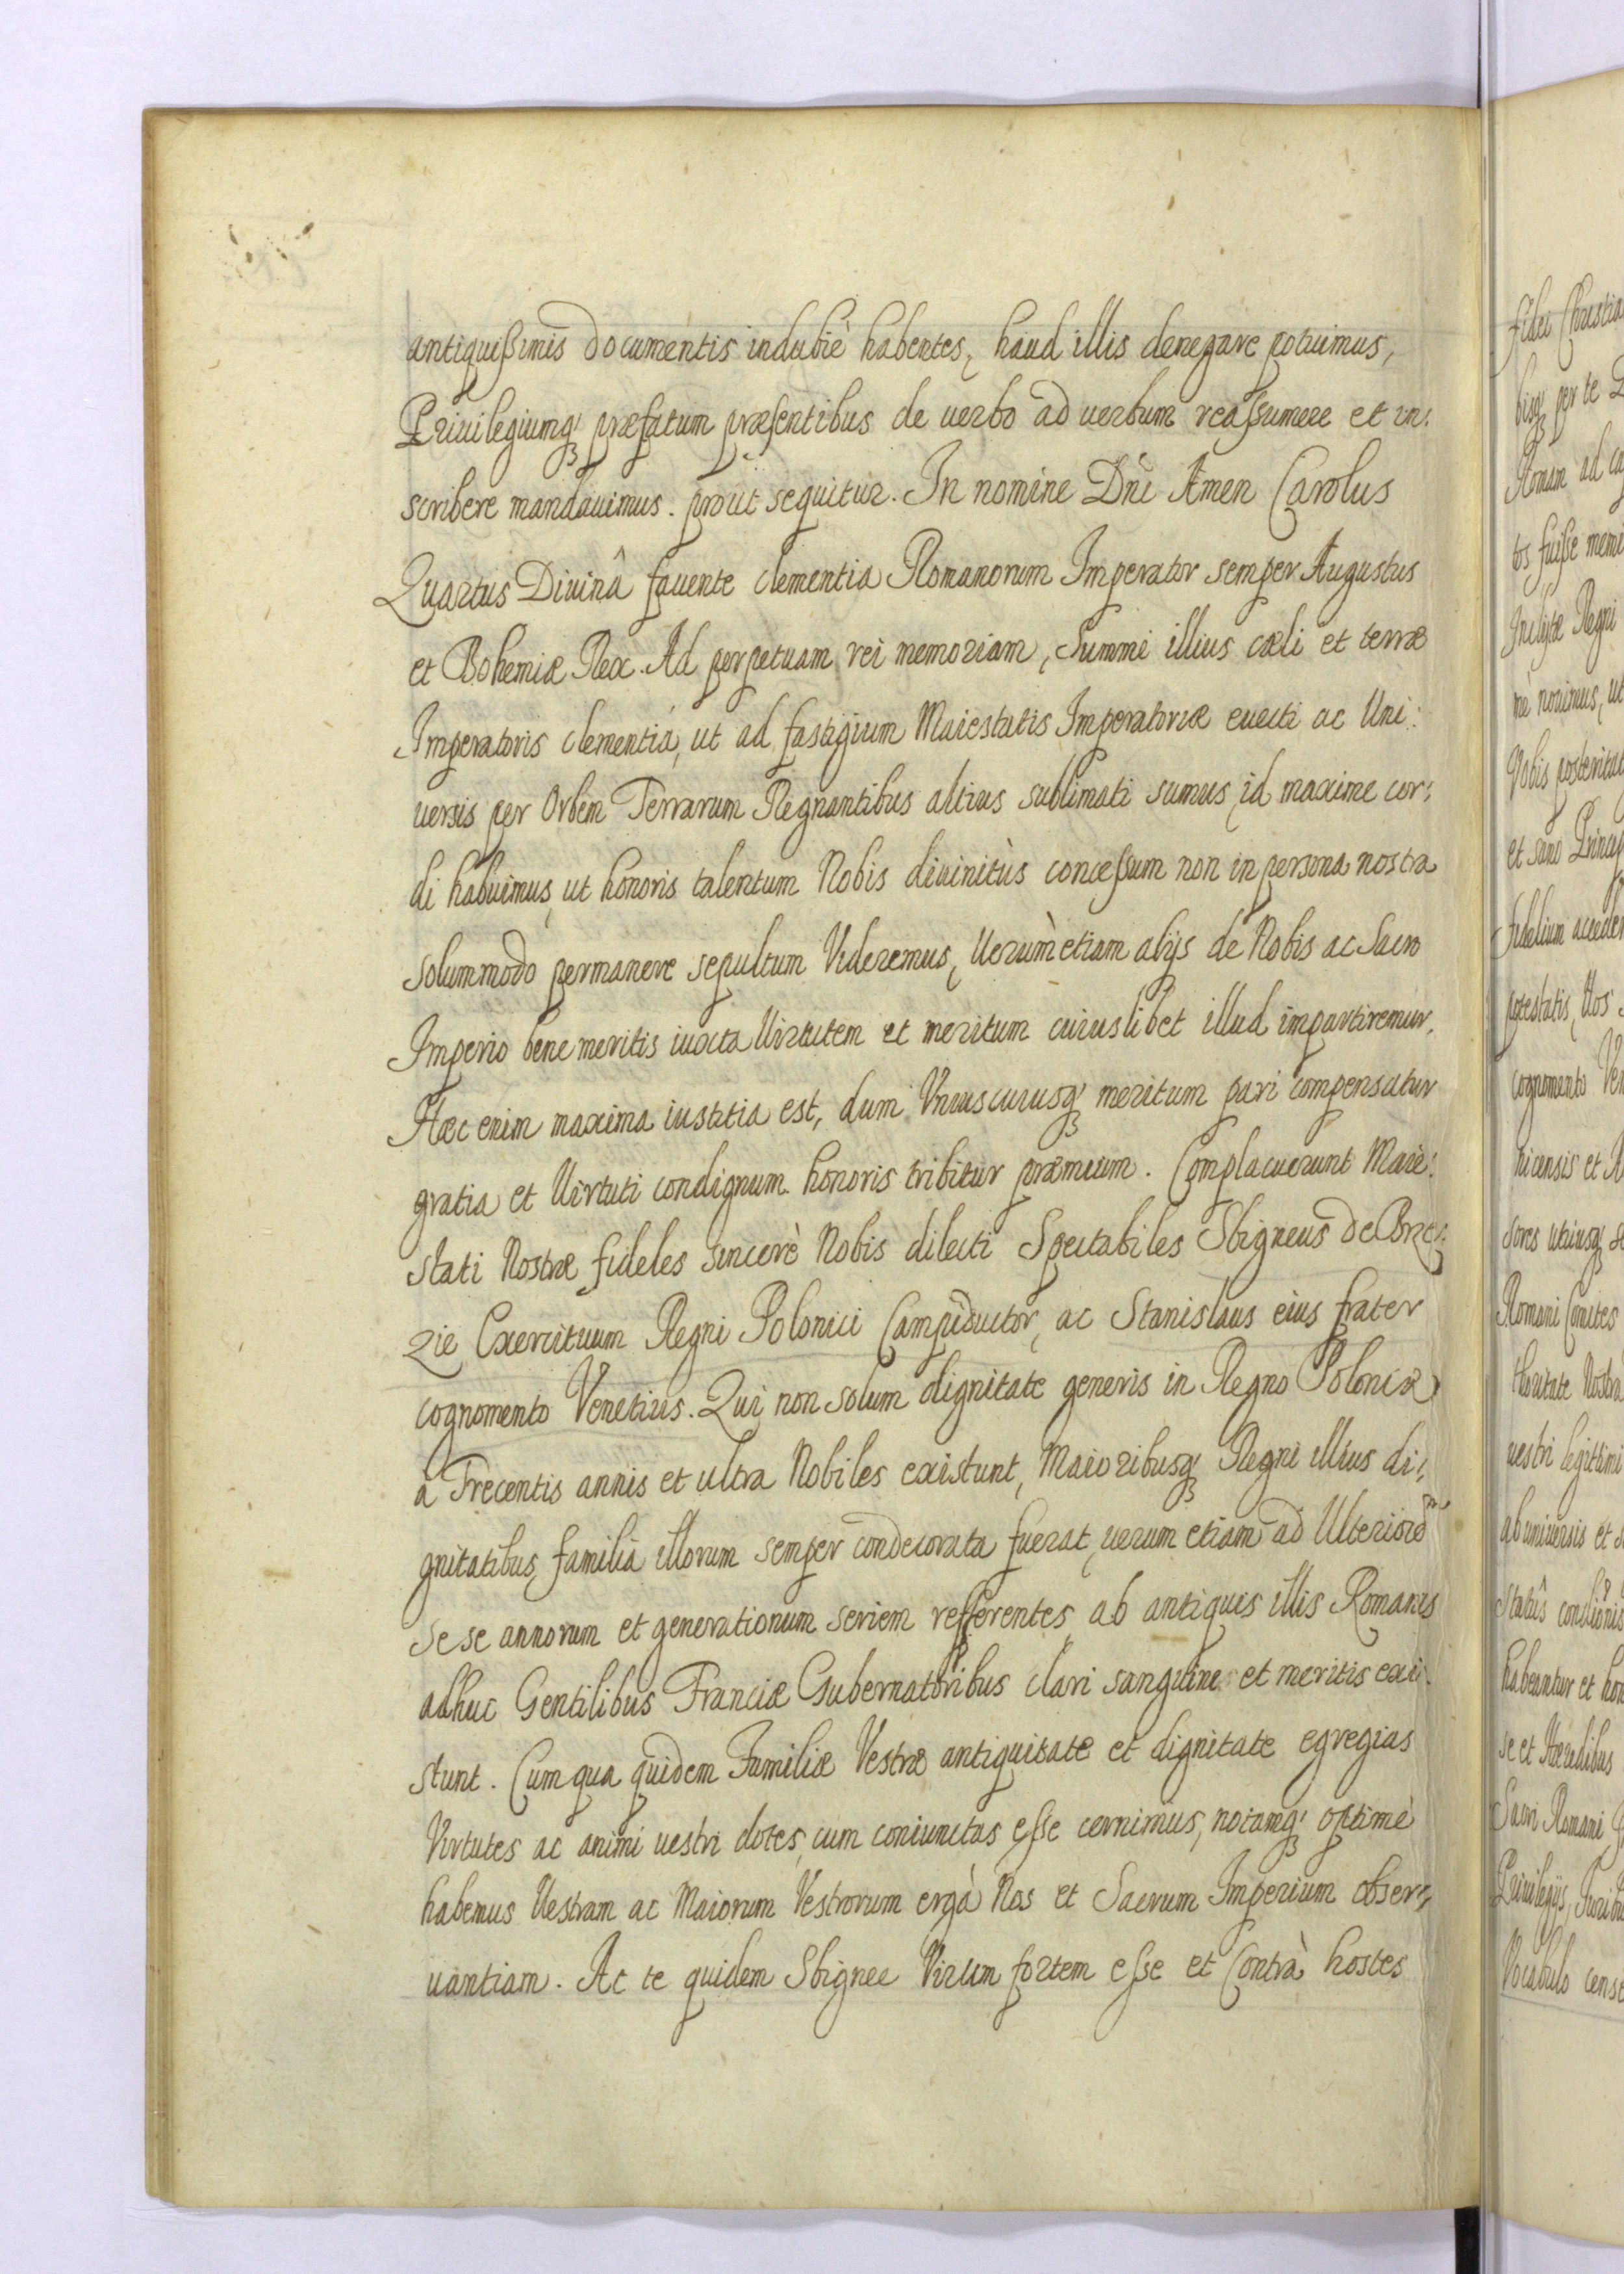 antiquißimis documentis indubiè habentes, haud illis denegare potuimus,
Priuilegiumq́ꝫ præfatum præsentibus de uerbo ad uerbum reaſsumere et in:
scribere mandauimus. prout sequitur. In nomine Dñi Amen Carolus
Quartus Diuinâ fauente clementia Romanorum Imperator semper Augustus
et Bohemiæ Rex. Ad perpetuam rei memoriam, Summi illius cæli et terræ
Imperatoris clementiá, ut ad fastigium Maiestatis Imperatoriæ euecti ac Uni:
uersis per Orbem Terrarum Regnantibus altius sublimati sumus, id maxime cor:
di habuimus, ut honoris talentum Nobis diuinitùs conceſsum non in persona nostra
solummodo permanere sepultum Videremus, Uerùm etiam alijs de Nobis ac Sacro
Imperio bene meritis iuxta Uirtutem et meritum cuiuslibet illud impartiremur.
Hæc enim maxima iustitia est, dum Vniuscuiusq́ꝫ meritum pari compensatur
gratia et Uirtuti condignum honoris tribitur præmium. Complacuerunt Maie:
stati Nostræ fideles sincerè Nobis dilecti Spectabiles Sbigneus de Brze:
zie Exercituum Regni Polonici Campiductor, ac Stanislaus eius frater
cognomento Venetius. Qui non solum dignitate generis in Regno Poloniæ
à Trecentis annis et ultra Nobiles existunt, Maioribusq́ꝫ Regni illius di:
gnitatibus familia illorum semper condecorata fuerat, uerum etiam ad Ulteriorẽ
se se annorum et generationum seriem refferentes, ab antiquis illis Romanis
adhuc Gentilibus Franciæ Gubernatoribus clari sanguine et meritis exi:
stunt. Cum qua quidem Familiæ Vestræ antiquitate et dignitate egregias
Virtutes ac animi uestri dotes, cum coniunctas eſse cernimus, notamq́ꝫ optimè
habemus Uestram ac Maiorum Vestrorum ergà Nos et Sacrum Imperium obser:
uantiam. Ac te quidem Sbignee Virum fortem eſse et Contrà hostes
fidei Christia
bisq́ꝫ per te
Roman ad
tos fuiſse
Inclytæ Regni
mè nouimus, ut
Nobis posteritat
et sano Princip
fidelium acceden
potestatis, Uos
cognomento Ven
nicensis et
Romani Comites
thoritate Nostra
uestri legittimi
ab uniuersis et
Statûs
habeantur et hono
se et Hæredibus
Sacri Romani
Priuilegijs, Iuribu
Vocabulo